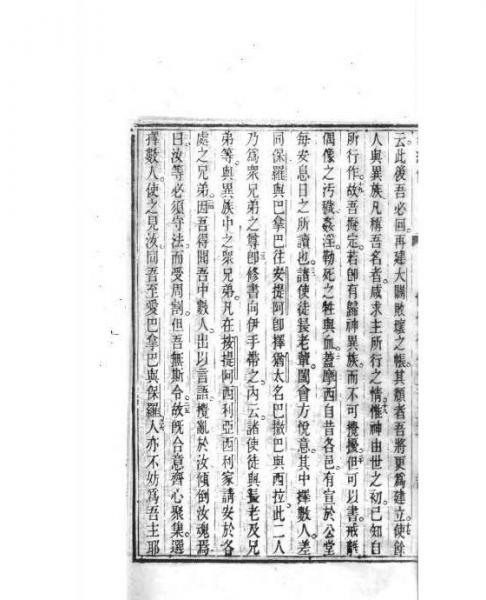 云此後吾必回再建大闢敗壞之帳其頹者吾將更爲建立使餘
人與異族凡稱吾名者咸求主所行之情惟神由世之初已知自
所行作故吾擬定若卽有歸神異族而不可攪擾但可以書戒離
偶像之污穢姦淫勒死之牲與血蓋摩西自昔各邑有宣於公堂
每安息日之所讀也諸使徒長老暨闔會方悅意其中擇數人差
同保羅與巴拿巴往安提阿卽擇猶太名巴撒巴與西拉此二人
乃爲衆兄弟之尊卽修書向伊手帶之內云諸使徒與長老及兄
弟等與異族中之衆兄弟凡在按提阿西利亞西利家請安於各
處之兄弟因吾得聞吾中數人出以言語攪亂於汝傾倒汝魂焉
曰汝等必須守法而受周割但吾無斯令故旣合意齊心聚集選
擇數人使之見汝同吾至愛巴拿巴與保羅人亦不妨爲吾主耶